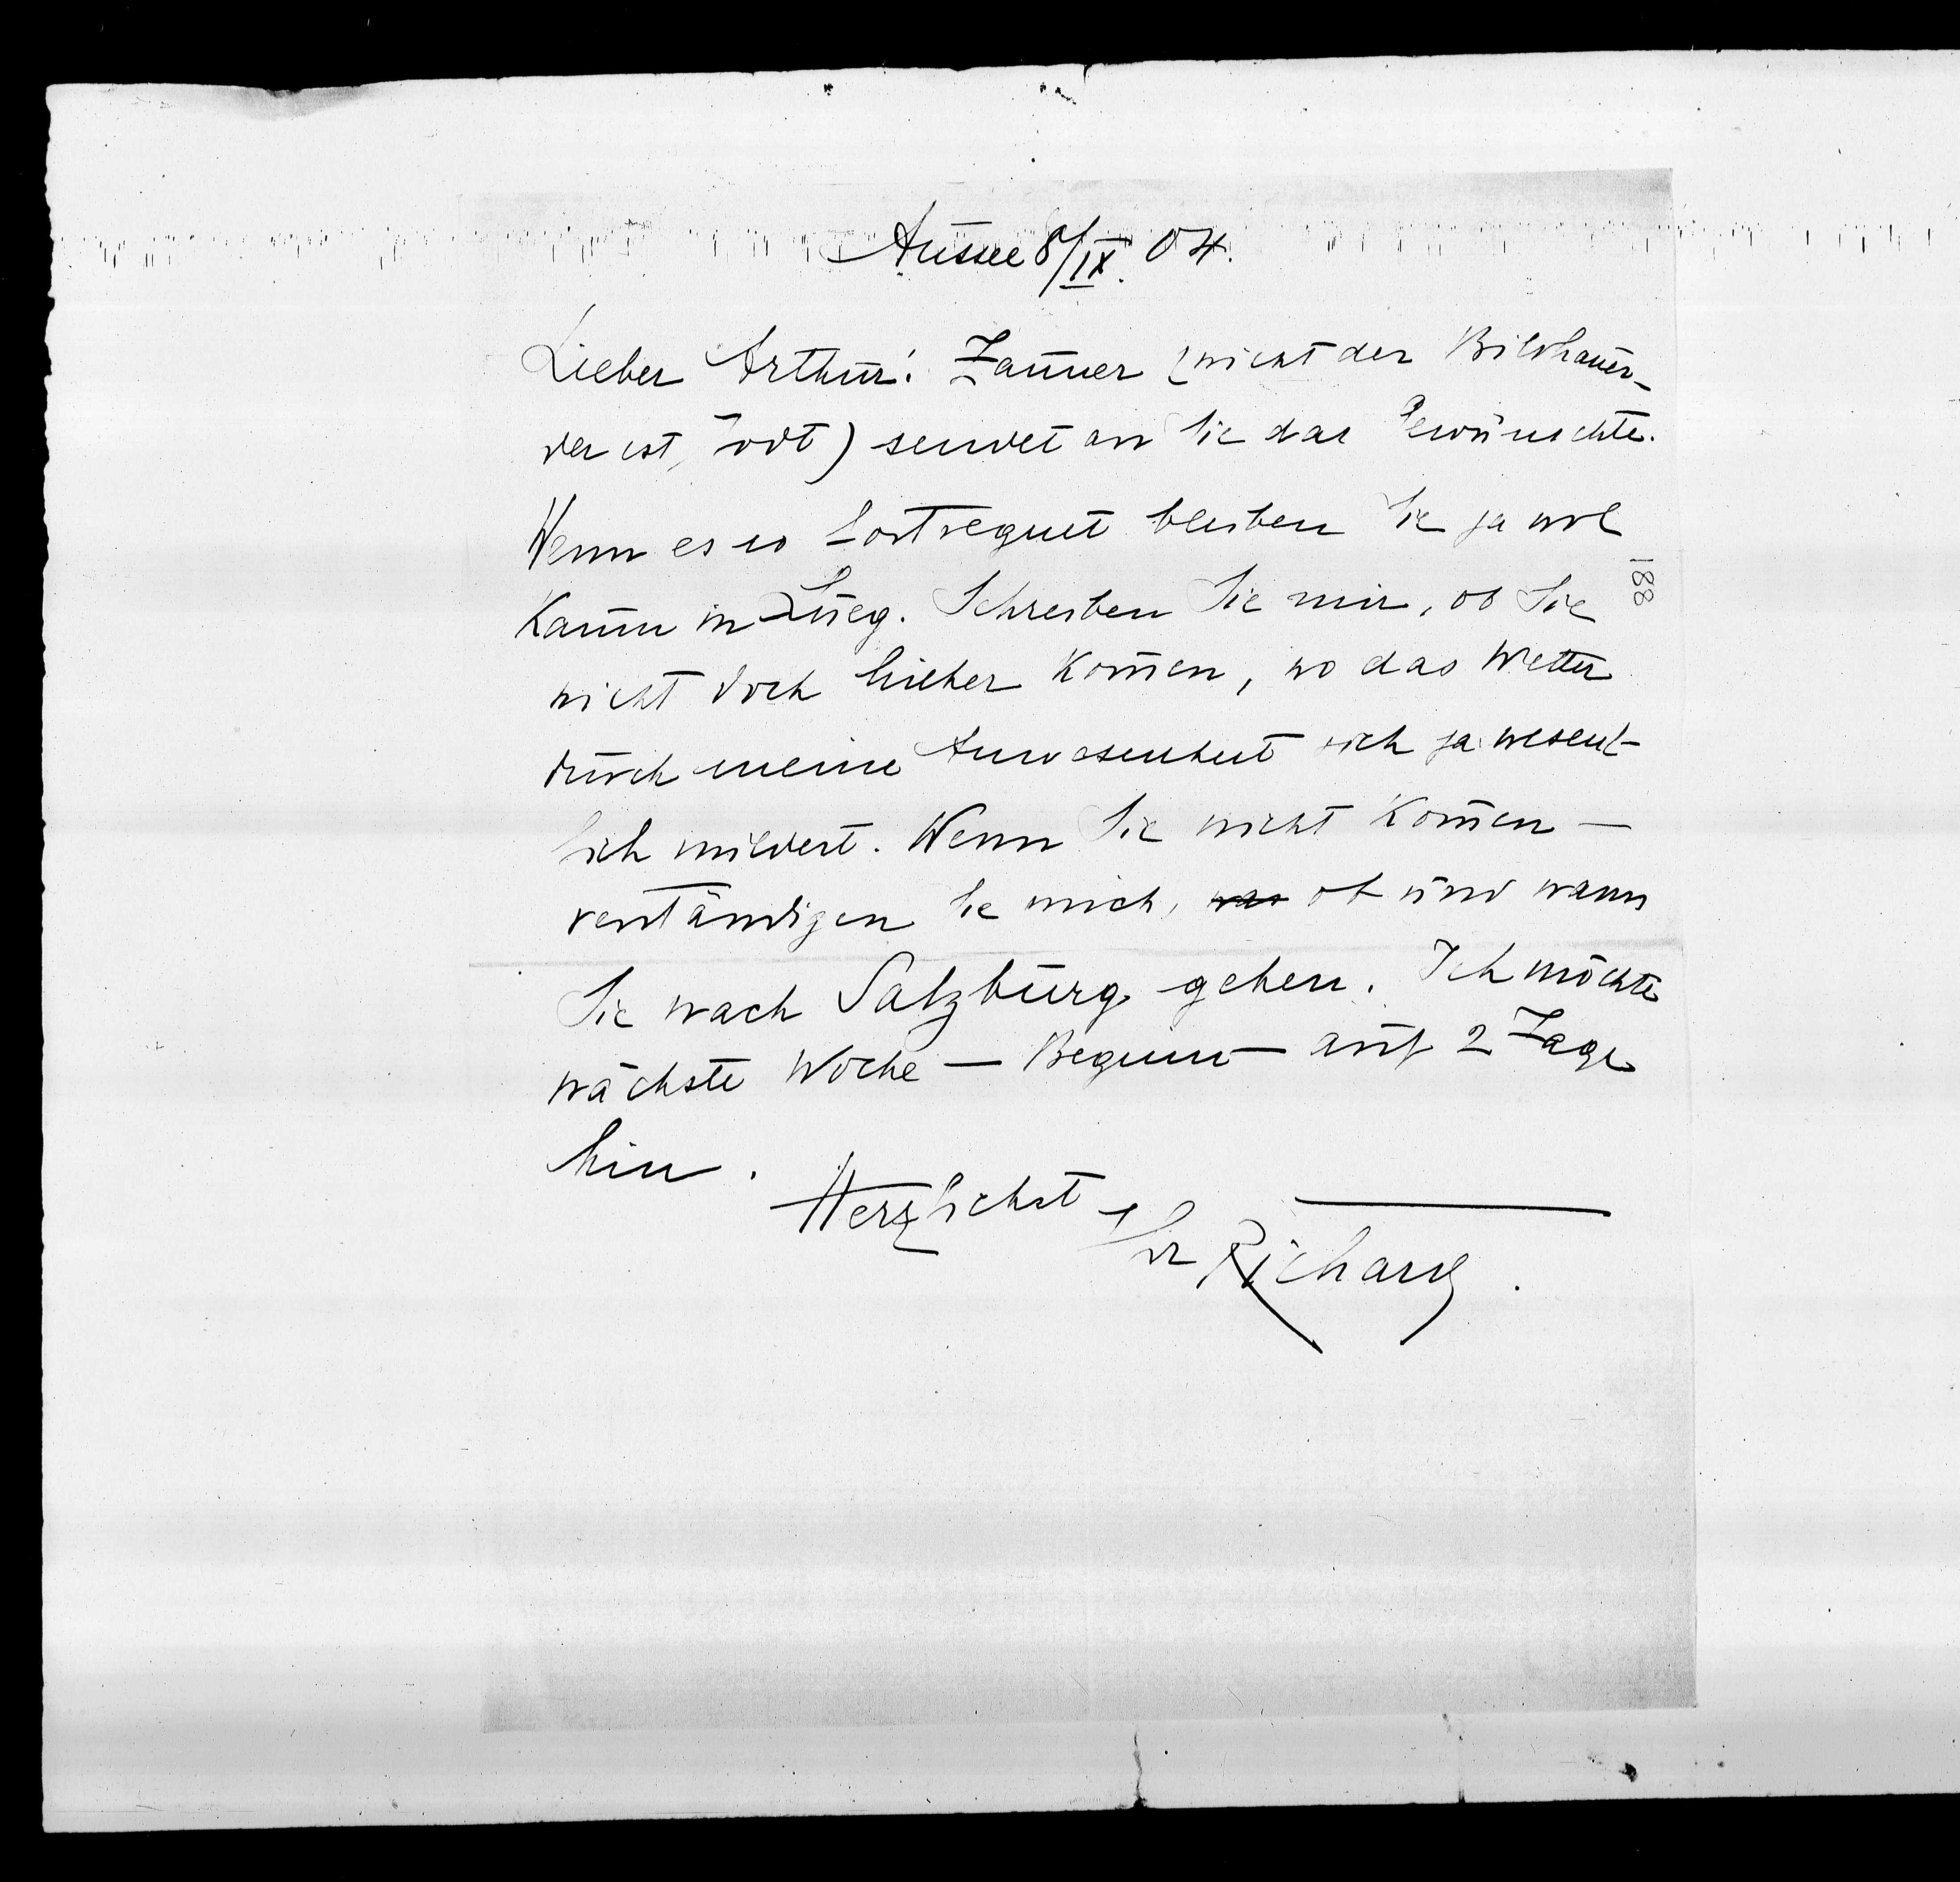 Aussee 8/IX. 04.
Lieber Arthur! Zauner (nicht der Bildhauer-
der ist todt) sendet an Sie das Gewünschte.
Wenn es so fortregnet bleiben Sie ja wol
kaum in Lueg. Schreiben Sie mir, ob Sie
nicht doch hieher kom̄en, wo das Wetter
durch meine Anwesenheit sich ja wesent-
lich mildert. Wenn Sie nicht kom̄en —
verständigen Sie mich, was ob und wann
Sie nach Salzburg gehen. Ich möchte
nächste Woche — Beginn — auf 2 Tage
hin.
Herzlichst
Ihr Richard.
188